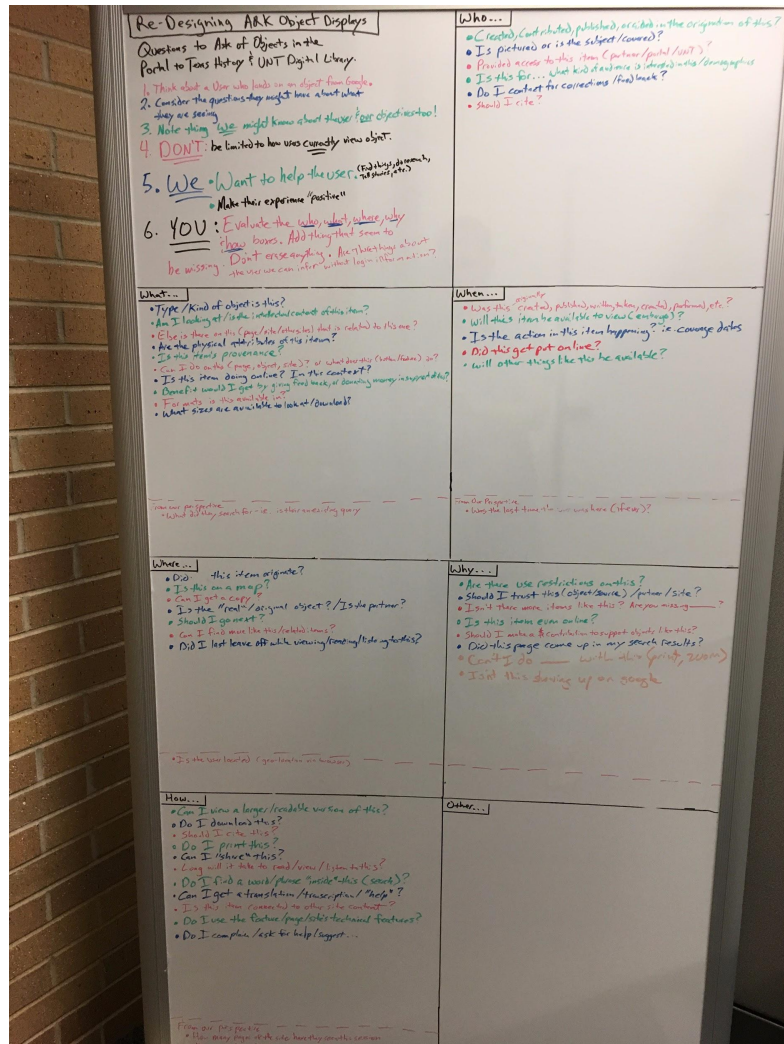 Re-Designing ARK Object Displays
Questions to Ask of Objects in the
Portal to Texas History & UNT Digital Library.
1. Think about a User who lands on an object from Google.
2. Consider the questions they might have about what
they are seeing
3. Note thing we might know about the user & our objectives too!
4. DON'T: be limited to how users currently view object.
5. We • Want to help the user. (Find things, do research,
Tell stories, etc.)
• Make their experience "positive"
6. YOU: Evaluate the who, what, where, why
& how boxes. Add thing that seem to
be missing. Don't erase anything. Are there things about
the user we can infer without login information?
Who...
• Created, Contributed, published, or aided in the origination of this?
• Is pictured or is the subject/covered?
• Provided access to this item (partner/portal/unit)?
• Is this for... what kind of audience is intended in this/demographics
• Do I contact for corrections/feedback?
• Should I cite?
What...
• Type/Kind of object is this?
• Am I looking at/is the intellectual content of this item?
• Else is there on this (page/site/others like) that is related to this one?
• Are the physical attributes of this item?
• Is this item's provenance?
• Can I do on this (page, object, site)? or what does this (button/feature) do?
• Is this item doing online? In this context?
• Benefit would I get by giving feedback, or donating money in support of this?
• Formats is this available in?
• What sizes are available to look at/download?
From our perspective
• What did they search for - ie. is there an existing query
When...
• Was this originally created, published, written, taken, created, performed, etc.?
• Will this item be available to view (embargo)?
• Is the action in this item happening? ie. coverage dates
• Did this get put online?
• Will other things like this be available?
From Our Perspective
• Was the last time the user was here (if ever)?
Where...
• Did this item originate?
• Is this on a map?
• Can I get a copy?
• Is the "real"/original object?/Is the partner?
• Should I go next?
• Can I find more like this/related items?
• Did I last leave off while viewing/reading/listening to this?
• Is the user located (geolocation on browser)
Why...
• Are there use restrictions on this?
• Should I trust this (object/source)/partner/site?
• Isn't there more items like this? Are you missing ____?
• Is this item even online?
• Should I make a $ contribution to support objects like this?
• Did this page come up in my search results?
• Can't I do ____ with this (print, zoom)
• Isn't this showing up on google
How...
• Can I view a larger/readable version of this?
• Do I download this?
• Should I cite this?
• Do I print this?
• Can I "share" this?
• Long will it take to read/view/listen to this?
• Do I find a word/phrase "inside" this (search)?
• Can I get a translation/transcription/"help"?
• Is this item connected to other site content?
• Do I use the feature/page/site's technical features?
• Do I complain/ask for help/suggest...
From our perspective
• How many pages of the site have they seen this session
Other...